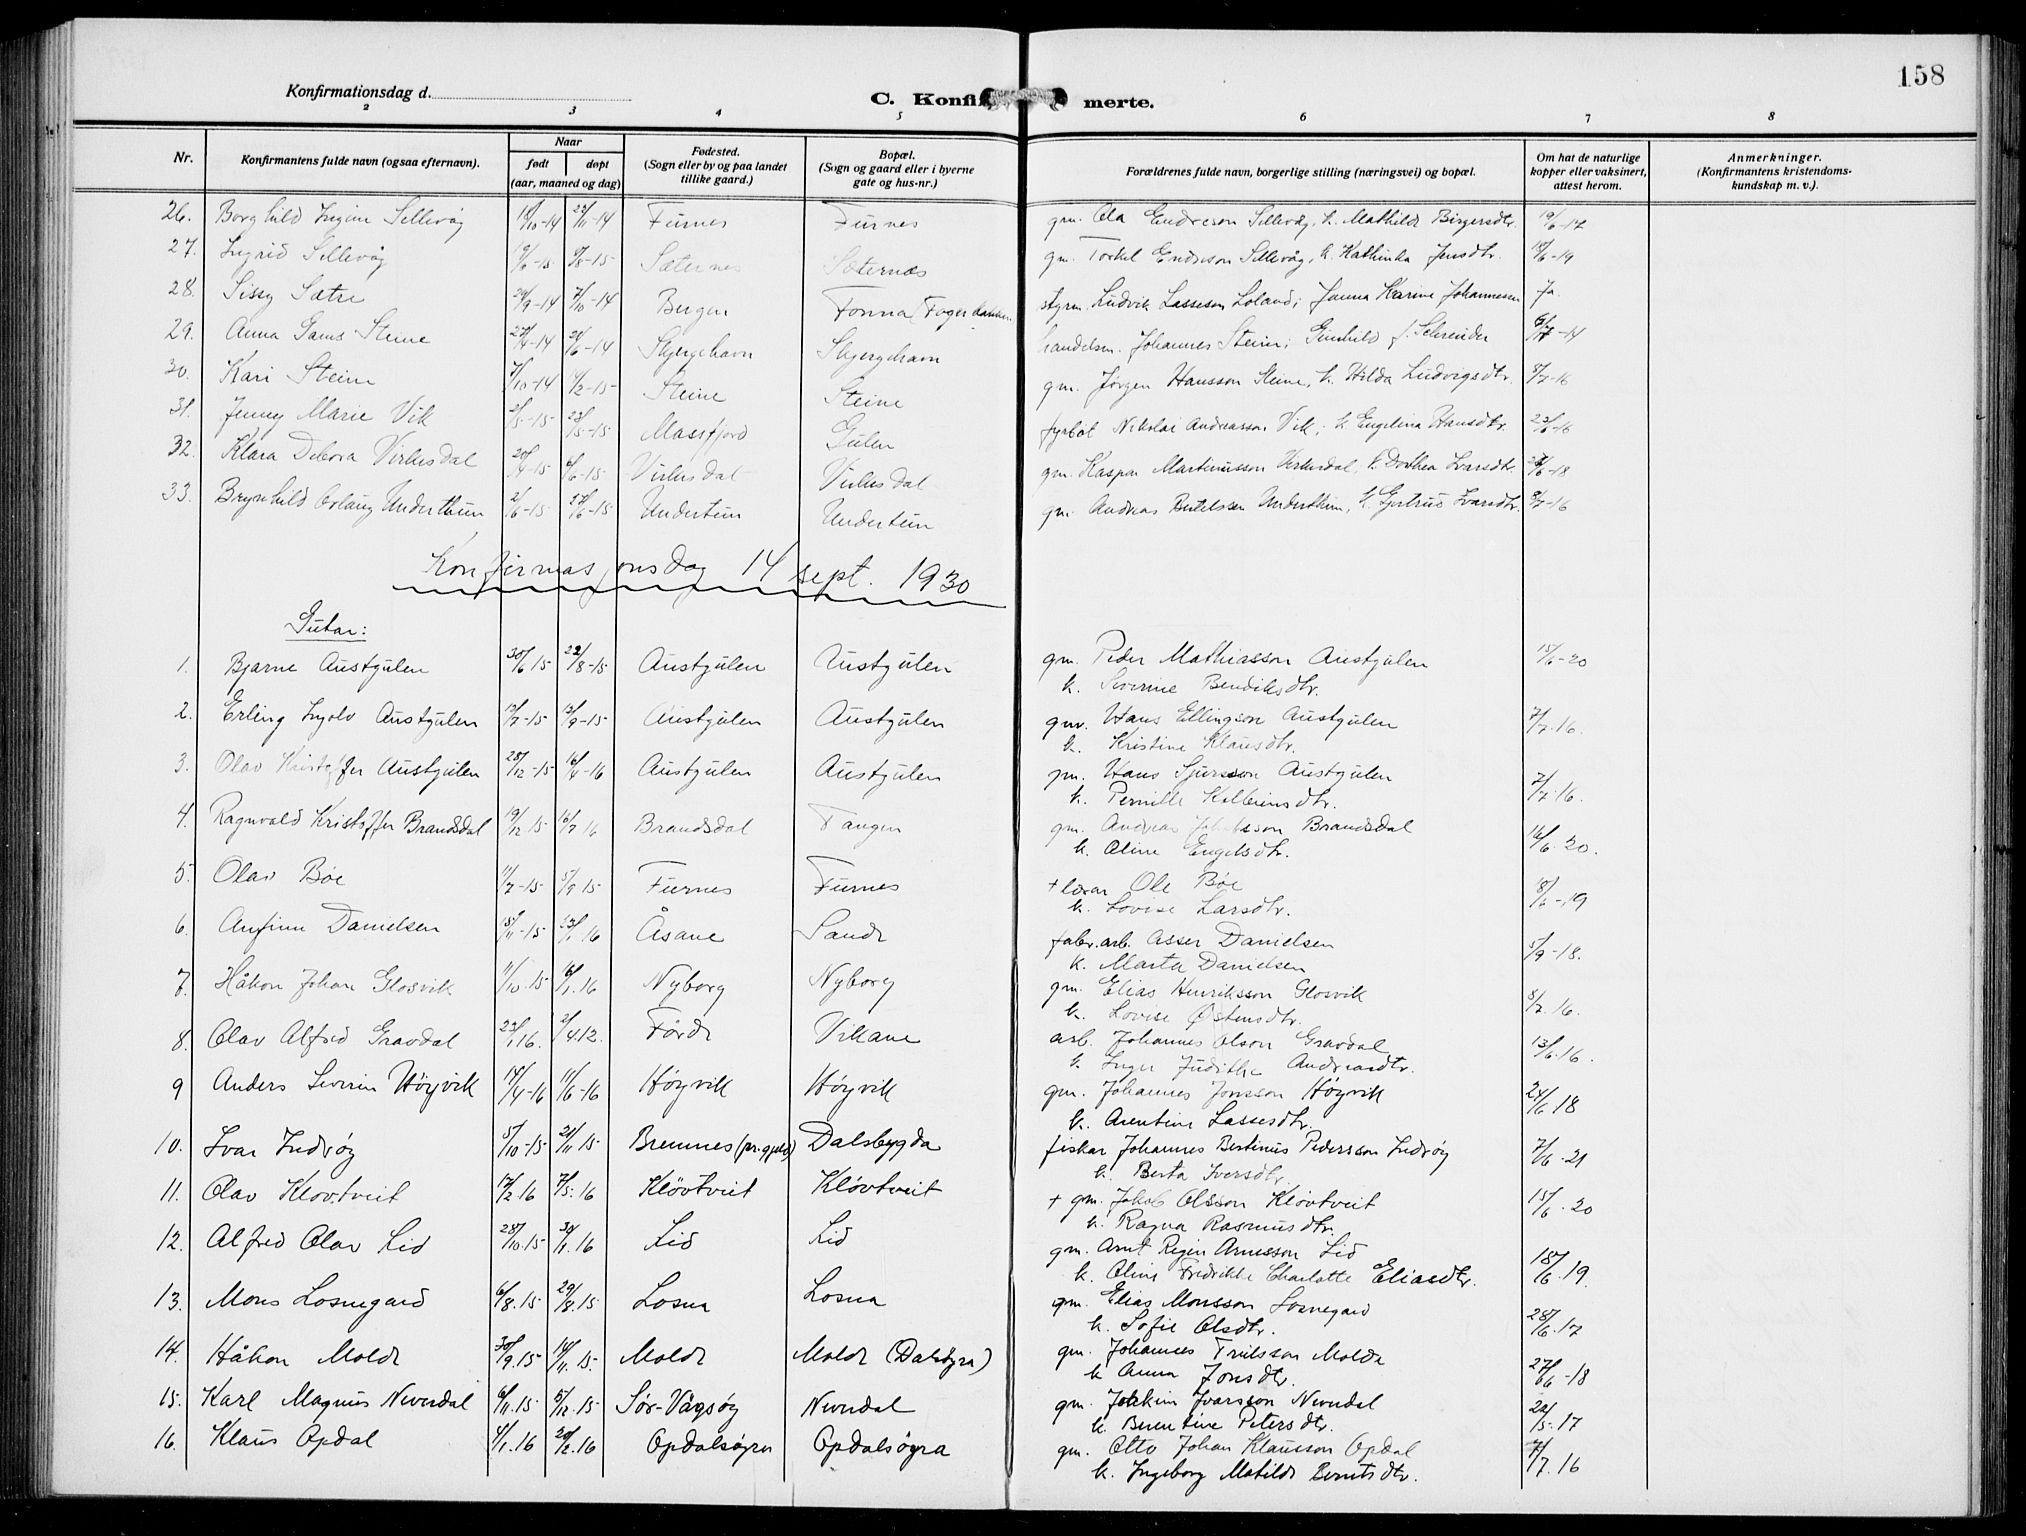 158
Konfirmationsdag d.
C. Konfirmerte.
2 3 4 5 6 7 8
Nr. Konfirmantens fulde navn (ogsaa efternavn). Naar født døpt (aar, maaned og dag) Fødested. (Sogn eller by og paa landet tillike gaard.) Bopæl. (Sogn og gaard eller i byerne gate og hus-nr.) Forældrenes fulde navn, borgerlige stilling (næringsvei) og bopæl. Om hat de naturlige kopper eller vaksinert, attest herom. Anmerkninger. (Konfirmantens kristendomskundskap m. v.).
26. Borghild Sellevåg -14 -14 Furnes Furnes gm. Ola Endreson Sellevåg, k. Mathilde Birgersdtr. 19/6-17
27. Ingrid Sellevåg -15 -15 Sæternes Sæternes gm. Torkel Endreson Sellevåg, k. Kathinka Jensdtr. 18/6-19
28. Sissy Sætre 24/9-14 7/10-14 Bergen styrm. Ludvik Lasseson Loland; Janna Karine Johannessen Ja.
29. Anna Gams Steine -14 -14 Skjergehavn Skjergehavn handelsm. Johannes Steine; Gunhild f. Schreuder -14
30. Kari Steine 7/10-14 -15 Steine Steine gm. Jørgen Hansson Steine, k. Hilda Ludvigsdtr. 8/7-16
31. Jenny Marie Vik 2/5-15 23/5-15 Masfjord Gulen fyrbøt Nikolai Andreasson Vik; k. Engelina Hansdtr. -16
32. Klara Debora Virkesdal 20/4-15 6/6-15 Virkesdal Virkesdal gm. Kaspar Martinusson Virkesdal, k. Dorthea Ivarsdtr. -18
33. Brynhild Oslaug Underthun 2/6-15 27/6-15 Undertun Undertun gm. Andreas Bertelssen Underthun, k. Gjertrud Ivarsdtr. 8/7-16
Konfirmasjonsdag 14 sept. 1930
Gutar:
1. Bjarne Austgulen 30/6 15 22/8-15 Austgulen Austgulen gm. Peder Mathiasson Austgulen 15/6-20
k. Severine Bendiksdtr.
2. Erling Ingolv Austgulen 13/7-15 12/9-15 Austgulen Austgulen gm. Hans Ellingson Austgulen 7/7.16.
k. Kristine Klausdtr.
3. Olav Kristoffer Austgulen 28/12-15 16/4-16 Austgulen Austgulen gm. Hans Sjursson Austgulen 7/7.16.
k. Pernille Kolbeinsdtr.
4. Ragnvald Kristoffer Brandsdal 19/12.15 16/7 16 Brandsdal Tangen gm. Andreas Jakobsson Brandsdal 16/6.20.
k. Oline Engelsdtr.
5. Olav Bøe 11/7-15 5/9 15 Furnes Furnes + lærar Ole Bøe 18/6-19
k. Lovise Larsdtr.
6. Anfinn Danielsen 18/11-15 23/1 16 Åsane Sande fabr.arb. Asser Danielsen 5/9-18.
k. Marta Danielsen
7. Håkon Johan Glosvik 11/10.15 16/1.16 Nyborg Nyborg gm. Elias Henriksson Glosvik 8/7.16.
k. Lovise Østensdtr.
8. Olav Alfred Gravdal 23/1 16. 2/4.12. Førde Vikane arb. Johannes Olson Gravdal 13/6.16.
k. Inger Judithe Andreasdtr.
9 Anders Severin Höyvik 14/4-16 11/6-16 Höyvik Höyvik gm. Johannes Jonsson Höyvik 24/6 18
k. Arentine Lassesdtr.
10. Ivar Indrøy 5/10-15 21/11 15 Bremnes (pr.gjeld) Dalsbygda fiskar Johannes Bertinus Pedersson Indrøy 7/6.21
k. Berta Iversdtr.
11. Olav Kløvtveit 17/2.16 7/5.16 Kløvtveit Kløvtveit + gm. Jakob Olsson Kløvtveit 15/6.20
k. Ragna Rasmusdtr.
12. Alfred Olav Lid 28/10.15 30/1.16 Lid Lid gm. Arnt Regin Arnesson Lid 18/6.19.
k. Oline Fredrikke Charlotte Eliasdtr.
13. Mons Losnegard 6/8.15 29/8.15 Losna Losna gm. Elias Monsson Losnegard 28/6.17
k. Sofie Olsdtr.
14. Håkon Molde 30/9.15 14/11.15. Molde Molde (Dalsøyra) gm. Johannes Truilsson Molde 27/6-18
k. Anna Jonsdtr.
15. Karl Magnus Nevendal 6/11.15 5/12.15 Sør-Vågsøy Nevndal gm. Joakim Ivarsson Nevndal 22/5.17
k. Berentine Petersdtr.
16. Klaus Opdal 4/1.16 20/2.16 Opdalsøyra Opdalsøyra gm. Otto Johan Klausson Opdal 7/7.16
k. Ingeborg Matilde Berntsdtr.